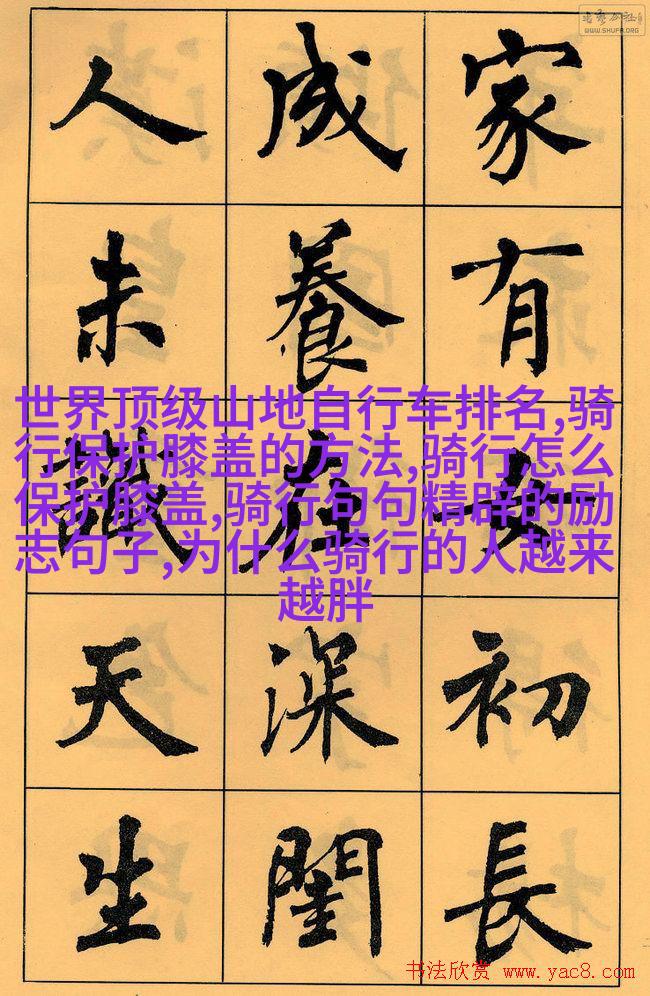 WWW.SHUFA.ORG
家有女初長
成養在深閨
人未識天生
世界顶级山地自行车排名,骑
行保护膝盖的方法,骑行怎么
保护膝盖,骑行句句精辟的励
志句子,为什么骑行的人越来
越胖
书法欣赏 www.yac8.com